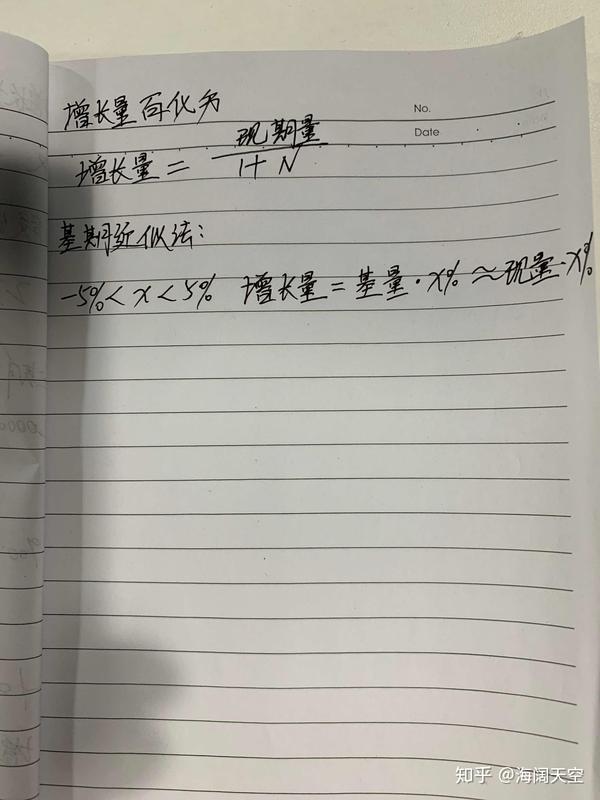 No.
Date
增长量百化分
增长量 = 现期量/1+N
基期近似法:
-5% < x < 5% 增长量 = 基量·x% ≈ 现量·x%
知乎 @海阔天空